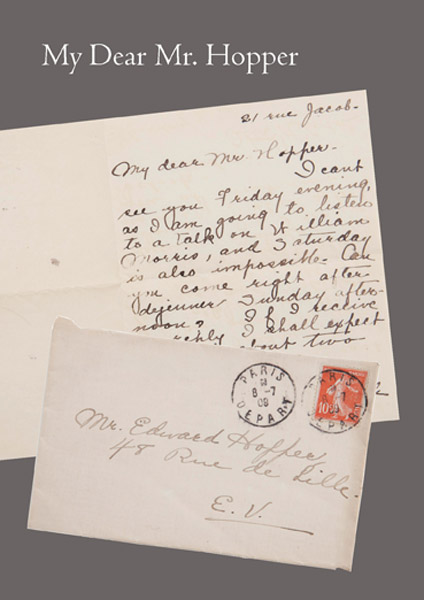 My Dear Mr. Hopper
21 rue Jacob-
My dear Mr. Hopper-
I cant
see you Friday evening,
as I am going to listen
to a talk on William
Morris, and Saturday
is also impossible. Can
you come right after-
déjeuner Sunday after-
noon? If I receive
I shall expect
about two
PARIS
8 -7
09
DEPART
PARIS
DEPART
10
Mr. Edward Hopper
48 Rue de Lille.
E.V.